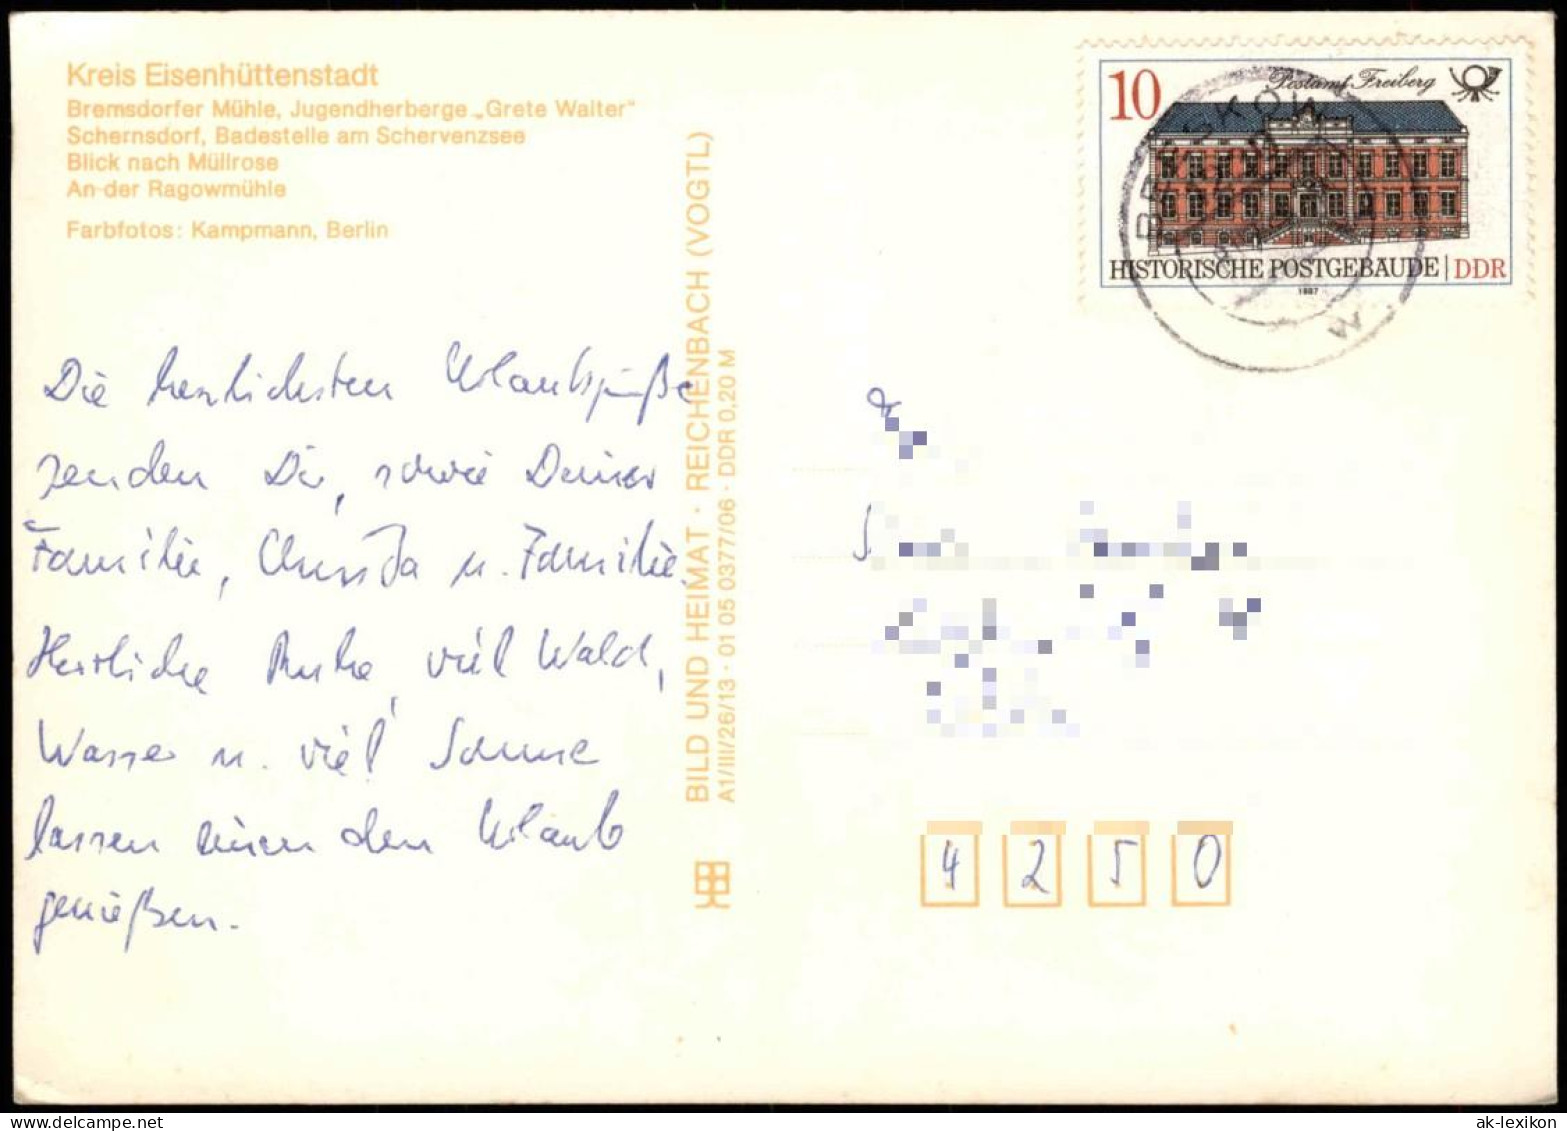 Kreis Eisenhüttenstadt
Bremsdorfer Mühle, Jugendherberge „Grete Walter"
Schernsdorf, Badestelle am Schervenzsee
Blick nach Müllrose
An der Ragowmühle
Farbfotos: Kampmann, Berlin
10
Postamt Freiberg
HISTORISCHE POSTGEBÄUDE | DDR
1987
BEESKOW
W
Die herzlichsten Urlaubsgrüße
senden Dir, sowie Deiner
Familie, Christa u. Familie.
Herrliche Ruhe, viel Wald,
Wasser u. viel Sonne
lassen einen den Urlaub
genießen.
BILD UND HEIMAT · REICHENBACH (VOGTL)
A1/III/26/13 · 01 05 0377/06 · DDR 0,20 M
4 2 5 0
ak-lexikon